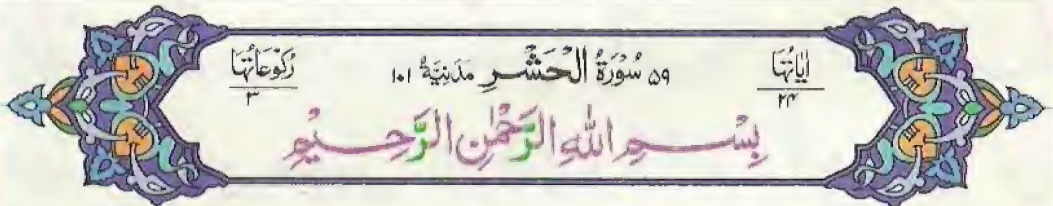 اٰیَاتُهَا ٢٤ ٥٩ سُوْرَةُ الْحَشْرِ مَدَنِيَّةٌ ١٠١ رُكُوْعَاتُهَا ٣
بِسْمِ اللهِ الرَّحْمٰنِ الرَّحِيْمِ